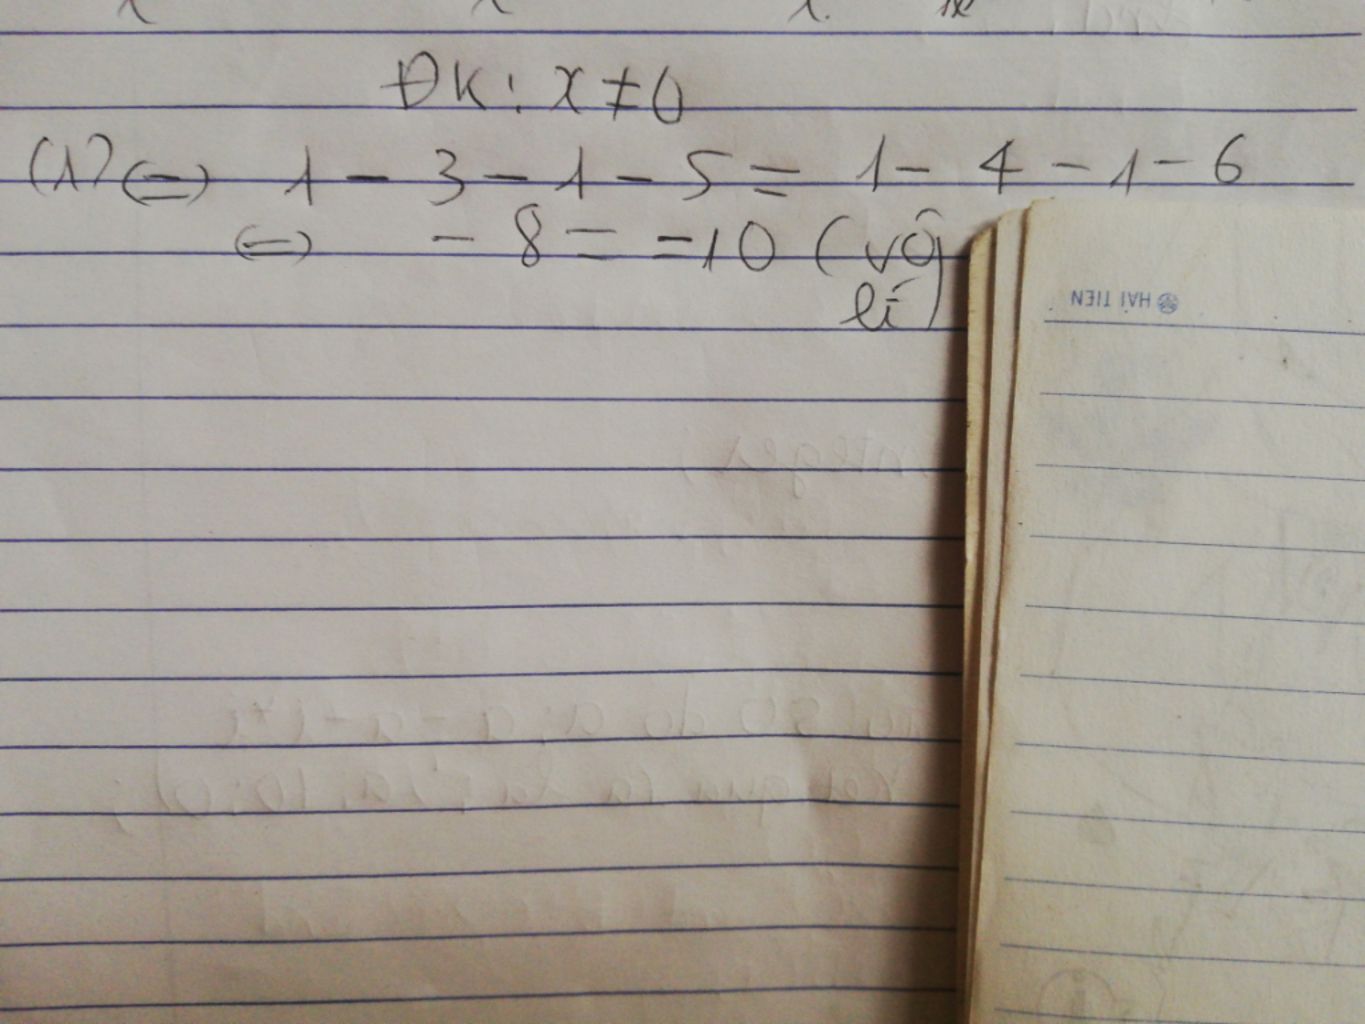 ĐK: x ≠ 0
(1) ⇔ 1 - 3 - 1 - 5 = 1 - 4 - 1 - 6
⇔ - 8 = -10 (vô
lí)
HẢI TIẾN